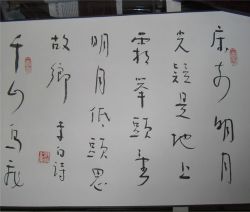 床前明月
光疑是地上
霜举頭望
明月低頭思
故鄉 李白詩
千山鳥飛